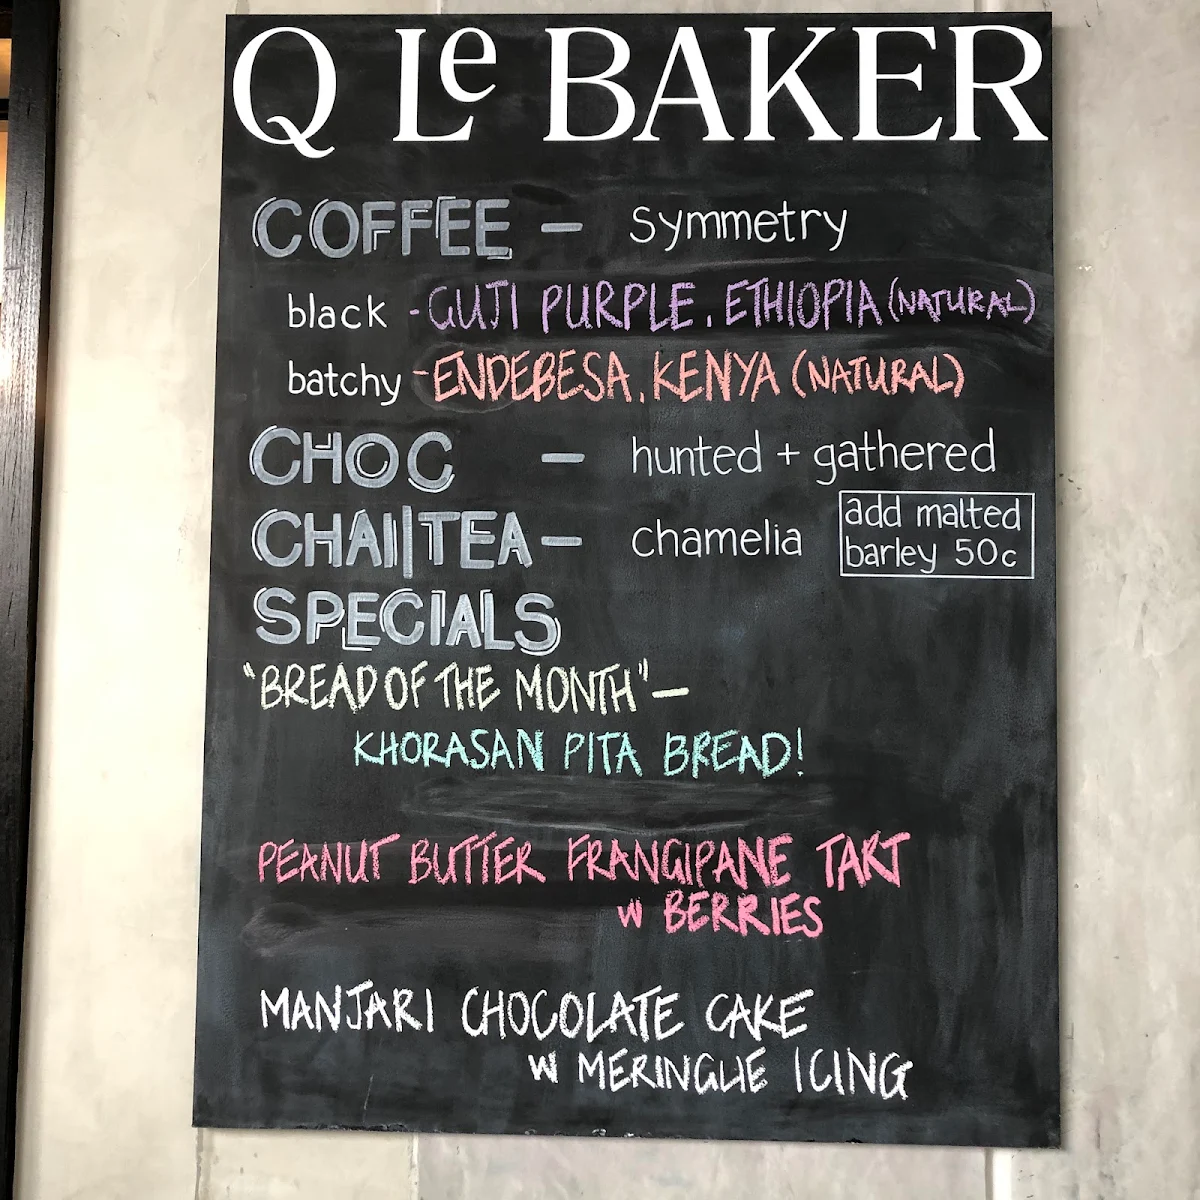 Q Le BAKER
COFFEE — Symmetry
black - GUJI PURPLE, ETHIOPIA (NATURAL)
batchy - ENDEBESA, KENYA (NATURAL)
CHOC — hunted + gathered
CHAI|TEA — chamelia
add malted
barley 50c
SPECIALS
"BREAD OF THE MONTH" —
KHORASAN PITA BREAD!
PEANUT BUTTER FRANGIPANE TART
W BERRIES
MANJARI CHOCOLATE CAKE
W MERINGUE ICING